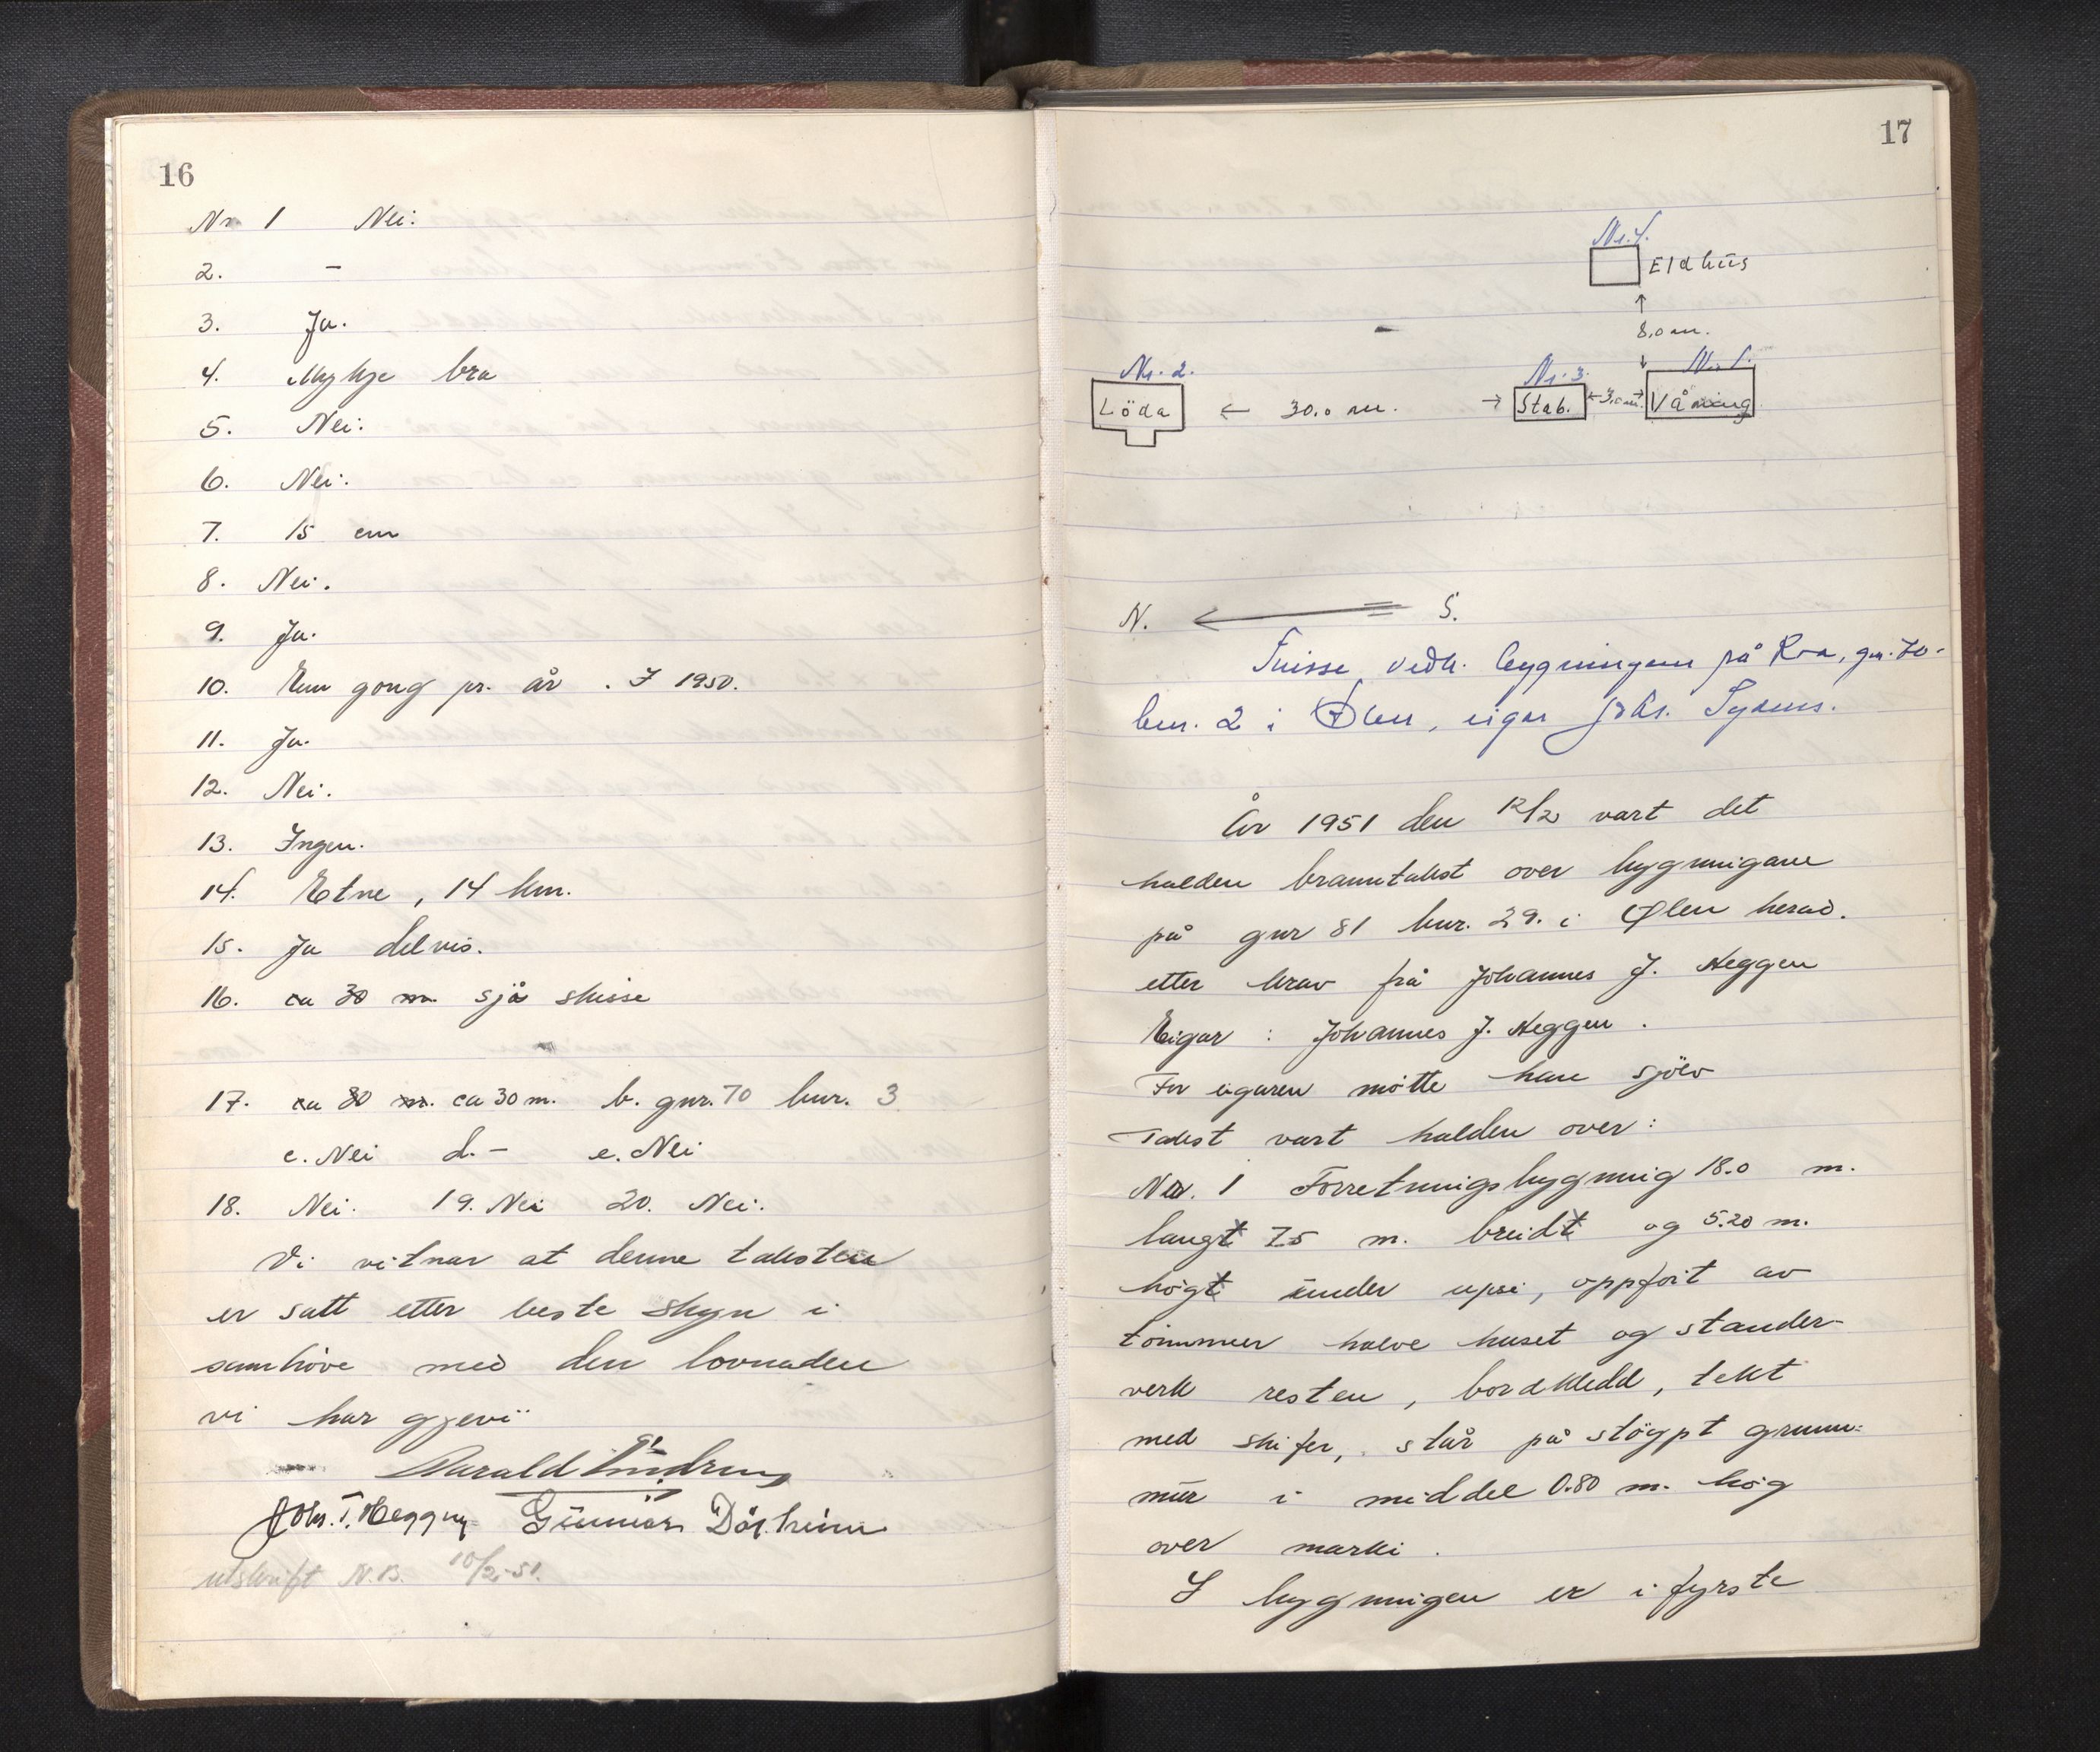 16
Nr 1 Nei.
2. -
3. Ja.
4. Mykje bra
5. Nei.
6. Nei.
7. 15 cm
8. Nei.
9. Ja.
10. Ein gong pr. år. I 1950.
11. Ja.
12. Nei.
13. Ingen.
14. Etne, 14 km.
15. Ja delvis.
16. ca 30 m. sjå skisse
17. ca 80 m. ca 30 m. b. gnr. 70 bnr. 3
c. Nei d. - e. Nei
18. Nei. 19. Nei 20. Nei.
Vi vitnar at denne taksten
er satt etter beste skyn i
samhöve med den lovnaden
vi har gjevi
Harald
Johs. T. Heggen Gunnar
utskrift N.B. 10/2-51.
17
Nr. 4.
Eldhus
8,0 m.
Nr. 2. Nr. 3. Nr. 1.
Löda ← 30.0 m. → Stab. ←3,0 m.→ Våning
N. S.
vedk. bygningane på Raa, gnr. 70-
bnr. 2 i Ølen, eigar Johs.
År 1951 den 12/2 vart det
halden branntakst over bygningane
på gnr 81 bnr. 29. i Ølen herad.
etter krav frå Johannes J. Heggen
Eigar : Johannes J. Heggen.
For eigaren mötte han sjölv
Takst vart halden over:
Nr. 1 Forretningsbygning 18.0 m.
langt 7.5 m. breidt og 5.20 m.
högt under upsi, oppfört av
tömmer halve huset og stander-
verk resten, bordkledd, tekt
med skifer, står på stöypt grunn-
mur i middel 0.80 m. hög
over marki.
I bygningen er i fyrste